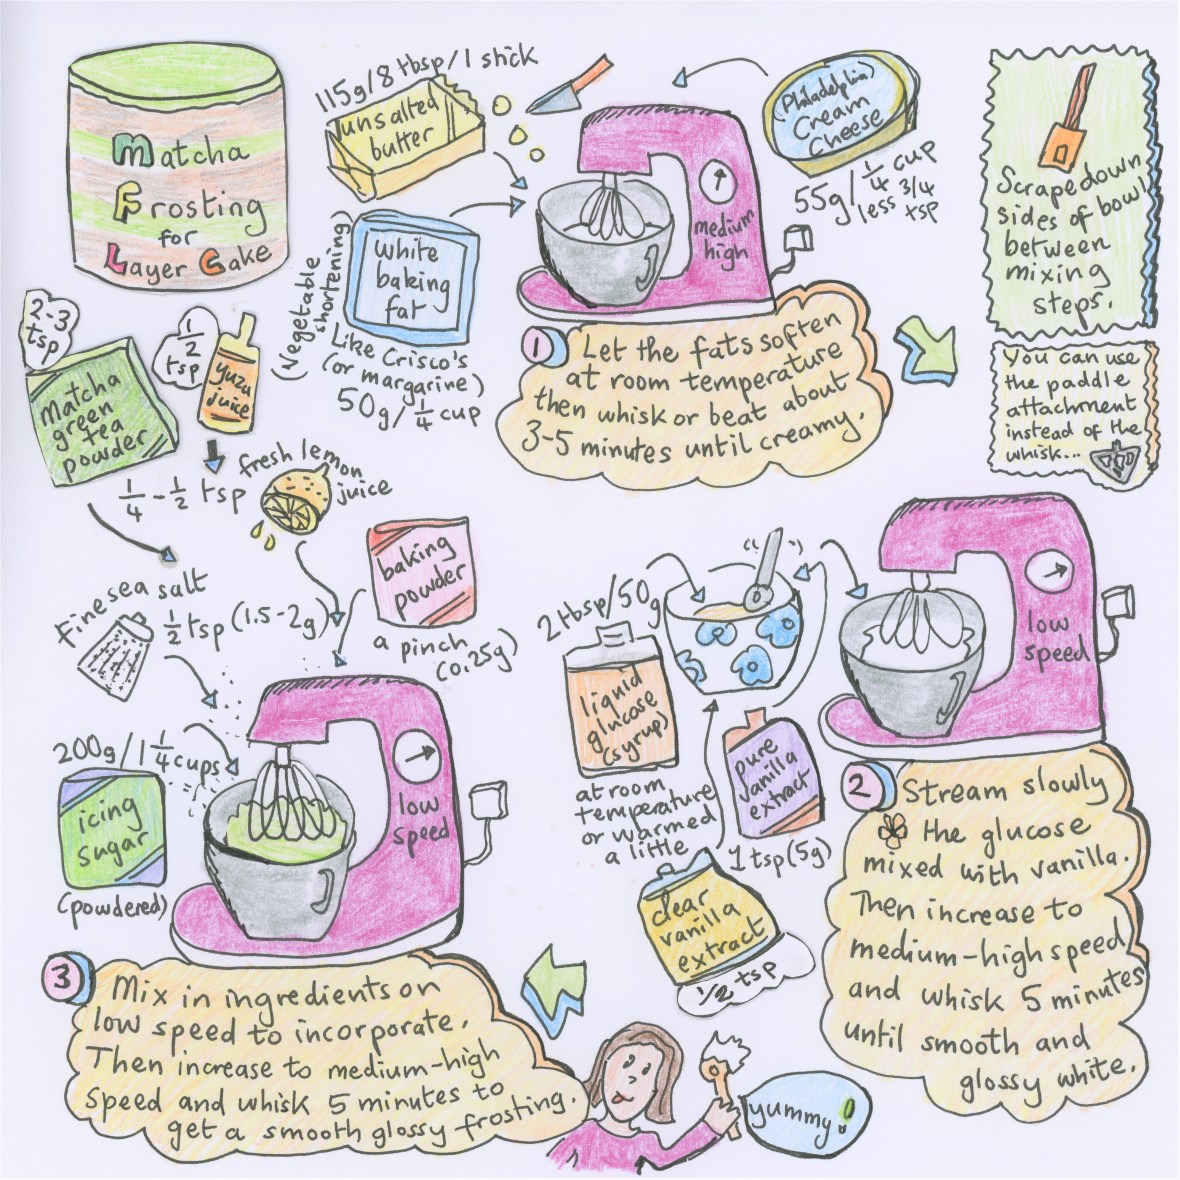 Matcha
Frosting
for
Layer Cake
115g/8 tbsp/1 stick
unsalted
butter
white
baking
fat
(Vegetable
shortening)
Like Crisco's
(or margarine)
50g/ 1/4 cup
medium
high
Philadelphia
Cream
Cheese
55g/ 1/4 cup
less 3/4
tsp
Scrape down
sides of bowl
between
mixing
steps.
You can use
the paddle
attachment
instead of the
whisk...
1 Let the fats soften
at room temperature
then whisk or beat about
3-5 minutes until creamy.
2-3
tsp
Matcha
green
tea
powder
1/2
tsp
yuzu
juice
1/4 - 1/2 tsp
fresh lemon
juice
baking
powder
a pinch
(0.25g)
Fine sea salt
1/2 tsp (1.5-2g)
200g/1 1/4 cups
icing
sugar
(powdered)
low
speed
2 tbsp/50g
liquid
glucose
(syrup)
at room
temperature
or warmed
a little
pure
vanilla
extract
1 tsp (5g)
clear
vanilla
extract
1/2 tsp
low
speed
2 Stream slowly
the glucose
mixed with vanilla.
Then increase to
medium-high speed
and whisk 5 minutes
until smooth and
glossy white.
3 Mix in ingredients on
low speed to incorporate.
Then increase to medium-high
speed and whisk 5 minutes to
get a smooth glossy frosting.
yummy!